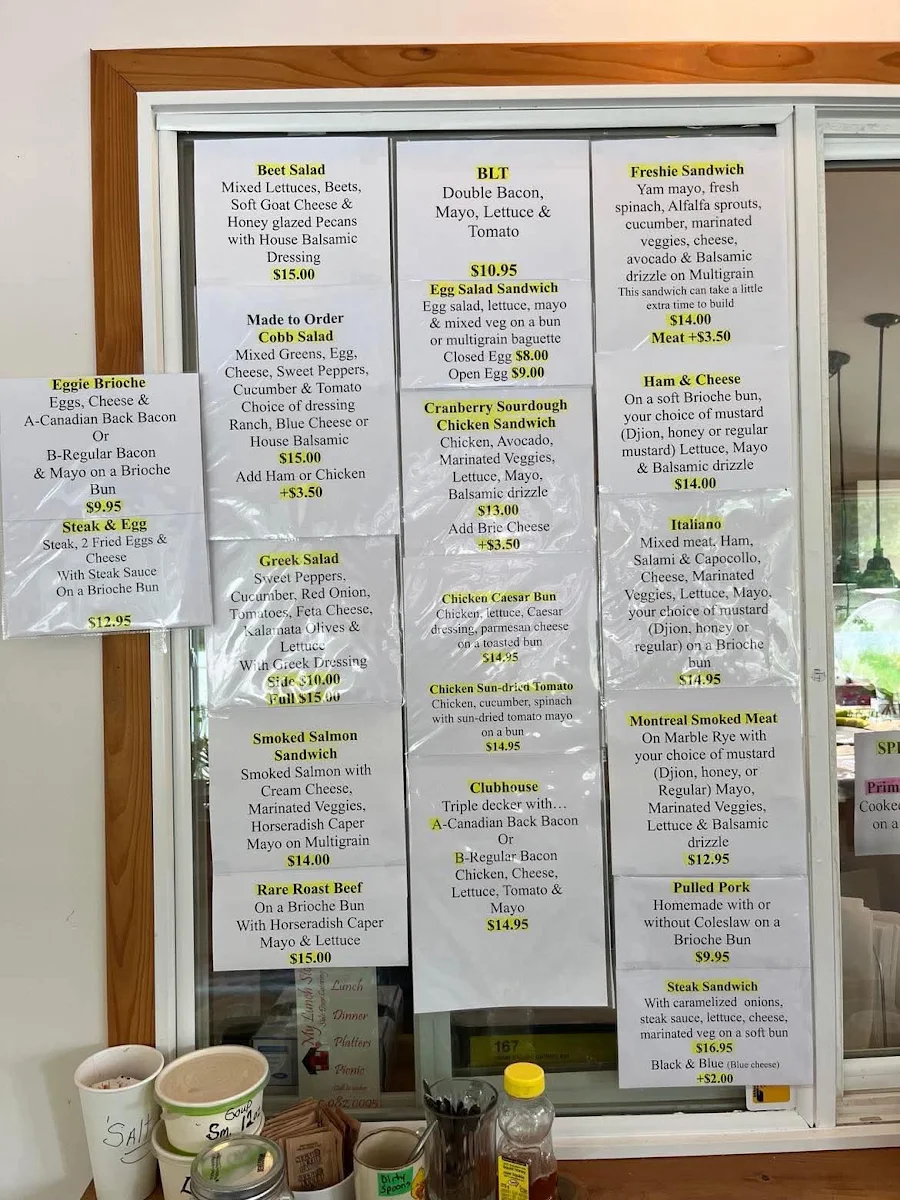 Eggie Brioche
Eggs, Cheese &
A-Canadian Back Bacon
Or
B-Regular Bacon
& Mayo on a Brioche
Bun
$9.95
Steak & Egg
Steak, 2 Fried Eggs &
Cheese
With Steak Sauce
On a Brioche Bun
$12.95
Beet Salad
Mixed Lettuces, Beets,
Soft Goat Cheese &
Honey glazed Pecans
with House Balsamic
Dressing
$15.00
Made to Order
Cobb Salad
Mixed Greens, Egg,
Cheese, Sweet Peppers,
Cucumber & Tomato
Choice of dressing
Ranch, Blue Cheese or
House Balsamic
$15.00
Add Ham or Chicken
+$3.50
Greek Salad
Sweet Peppers,
Cucumber, Red Onion,
Tomatoes, Feta Cheese,
Kalamata Olives &
Lettuce
With Greek Dressing
Side $10.00
Full $15.00
Smoked Salmon
Sandwich
Smoked Salmon with
Cream Cheese,
Marinated Veggies,
Horseradish Caper
Mayo on Multigrain
$14.00
Rare Roast Beef
On a Brioche Bun
With Horseradish Caper
Mayo & Lettuce
$15.00
BLT
Double Bacon,
Mayo, Lettuce &
Tomato
$10.95
Egg Salad Sandwich
Egg salad, lettuce, mayo
& mixed veg on a bun
or multigrain baguette
Closed Egg $8.00
Open Egg $9.00
Cranberry Sourdough
Chicken Sandwich
Chicken, Avocado,
Marinated Veggies,
Lettuce, Mayo,
Balsamic drizzle
$13.00
Add Brie Cheese
+$3.50
Chicken Caesar Bun
Chicken, lettuce, Caesar
dressing, parmesan cheese
on a toasted bun
$14.95
Chicken Sun-dried Tomato
Chicken, cucumber, spinach
with sun-dried tomato mayo
on a bun
$14.95
Clubhouse
Triple decker with…
A-Canadian Back Bacon
Or
B-Regular Bacon
Chicken, Cheese,
Lettuce, Tomato &
Mayo
$14.95
Freshie Sandwich
Yam mayo, fresh
spinach, Alfalfa sprouts,
cucumber, marinated
veggies, cheese,
avocado & Balsamic
drizzle on Multigrain
This sandwich can take a little
extra time to build
$14.00
Meat +$3.50
Ham & Cheese
On a soft Brioche bun,
your choice of mustard
(Djion, honey or regular
mustard) Lettuce, Mayo
& Balsamic drizzle
$14.00
Italiano
Mixed meat, Ham,
Salami & Capocollo,
Cheese, Marinated
Veggies, Lettuce, Mayo,
your choice of mustard
(Djion, honey or
regular) on a Brioche
bun
$14.95
Montreal Smoked Meat
On Marble Rye with
your choice of mustard
(Djion, honey, or
Regular) Mayo,
Marinated Veggies,
Lettuce & Balsamic
drizzle
$12.95
Pulled Pork
Homemade with or
without Coleslaw on a
Brioche Bun
$9.95
Steak Sandwich
With caramelized onions,
steak sauce, lettuce, cheese,
marinated veg on a soft bun
$16.95
Black & Blue (Blue cheese)
+$2.00
Prim
Cooke
on a
My Lunch
Lunch
Dinner
Platters
Picnic
167
'SALT
Soup
Sm. 12oz
Dirty
Spoons